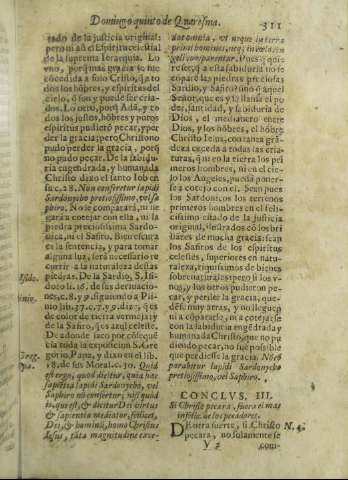 Domingo quinto de Quaresma.
311
tado de la justicia original:
pero ni aũ el Espiritu celestial
de la suprema Ierarquia. Lo
vno, porq̃ mas gracia se
cocedida a solo Cristo, q̃ a to
dos los hõbres, y espiritus del
cielo, q̃ son y puede ser cria-
dos. Lo otro, porq̃ Adã, y to
dos los justos, hõbres y puros
espiritus pudierõ pecar, y per
der la gracia; pero Christo no
pudo perder la gracia, porq̃
no pudo pecar. De la sabidu
ria engendrada, y humanada
Christo dixo el santo Iob en
su c. 28. Non conferetur lapidi
Sardonycho pretiosissimo, vel sa
phiro. No se comparará, ni se
hará cotejo con ella, ni la
piedra preciosissima Sardo-
nica, ni el Safiro. Bien escura
es la sentencia, y para tomar
alguna luz, será necesario re
currir a la naturaleza destas
piedras. De la Sardio, S. Isi-
doro li. 16. de sus
nes, c. 8. y 9. siguiendo a Pli-
nio lib. 37. c. 7. y 9. dize, q̃ es
de color de tierra vermeja: y
de la Safiro, q̃ es azul celeste.
De adonde saco por cõseque
cia toda la exposicion S. Gre
gorio Papa, y dixo en el lib.
18. de sus Moral. c. 30. Quid
est ergo, quod dicitur, quia hac
sapientia lapidi Sardonycho, vel
Saphiro nõ confertur; nisi quod
is, qui est, & dicitur Dei virtus
& sapientia mediator, scilicet,
Dei, & hominũ, homo Christus
Iesus, tãta magnitudine exce-
Isido.
Greg.
Pa.
dat omnia, vt neque in terra
primi homines, neq; in cœlo an
geli comparentur. Pues q̃ quie
rese, q̃ a esta sabiduria no se
cõparẽ las piedras preciosas
Sardio, y Safiro? sino q̃ aquel
Señor, que es y se llama el po
der, santidad, y sabiduria de
Dios, el medianero entre
Dios, y los hõbres, el hõbre
Christo Iesus, con tanta grã-
deza exceda a todas las cria-
turas, q̃ ni en la tierra los pri
meros hombres, ni en el cie-
lo los Angeles, pueda poner-
se a cotejo con el. Sean pues
los Sardonicos los terrenos
primeros hombres en el feli-
cissimo estado de la justicia
original, con los bri
llãtes de mucha gracia: sean
los Safiros de los espiritus
celestes, superiores en natu-
raleza, riquissimos de bienes
sobrenaturales: pero si los v-
nos, y los otros pudieron pe-
car, y perder la gracia, que-
dẽse muy atras, y no llegue
ni a cõpararse, ni a cotejarse
con la sabiduria engẽdrada y
humanada Christo, que no pu
diendo pecar, no fue possible
que perdiesse la gracia. Nõ cõ
parabitur lapidi Sardonycho
pretiosissimo, vel Saphiro.
CONCLVS. III.
Si Christo pecara, fuera el mas
infeliz de los pecadores.
DE otra suerte, si Christo
pecara, no solamente se
N. 4.
V 2
com-